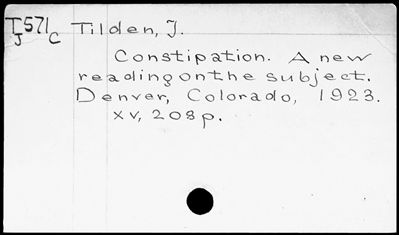 T571 Tilden, J.
J C
Constipation. A new
reading on the subject.
Denver, Colorado, 1923.
xv, 208p.